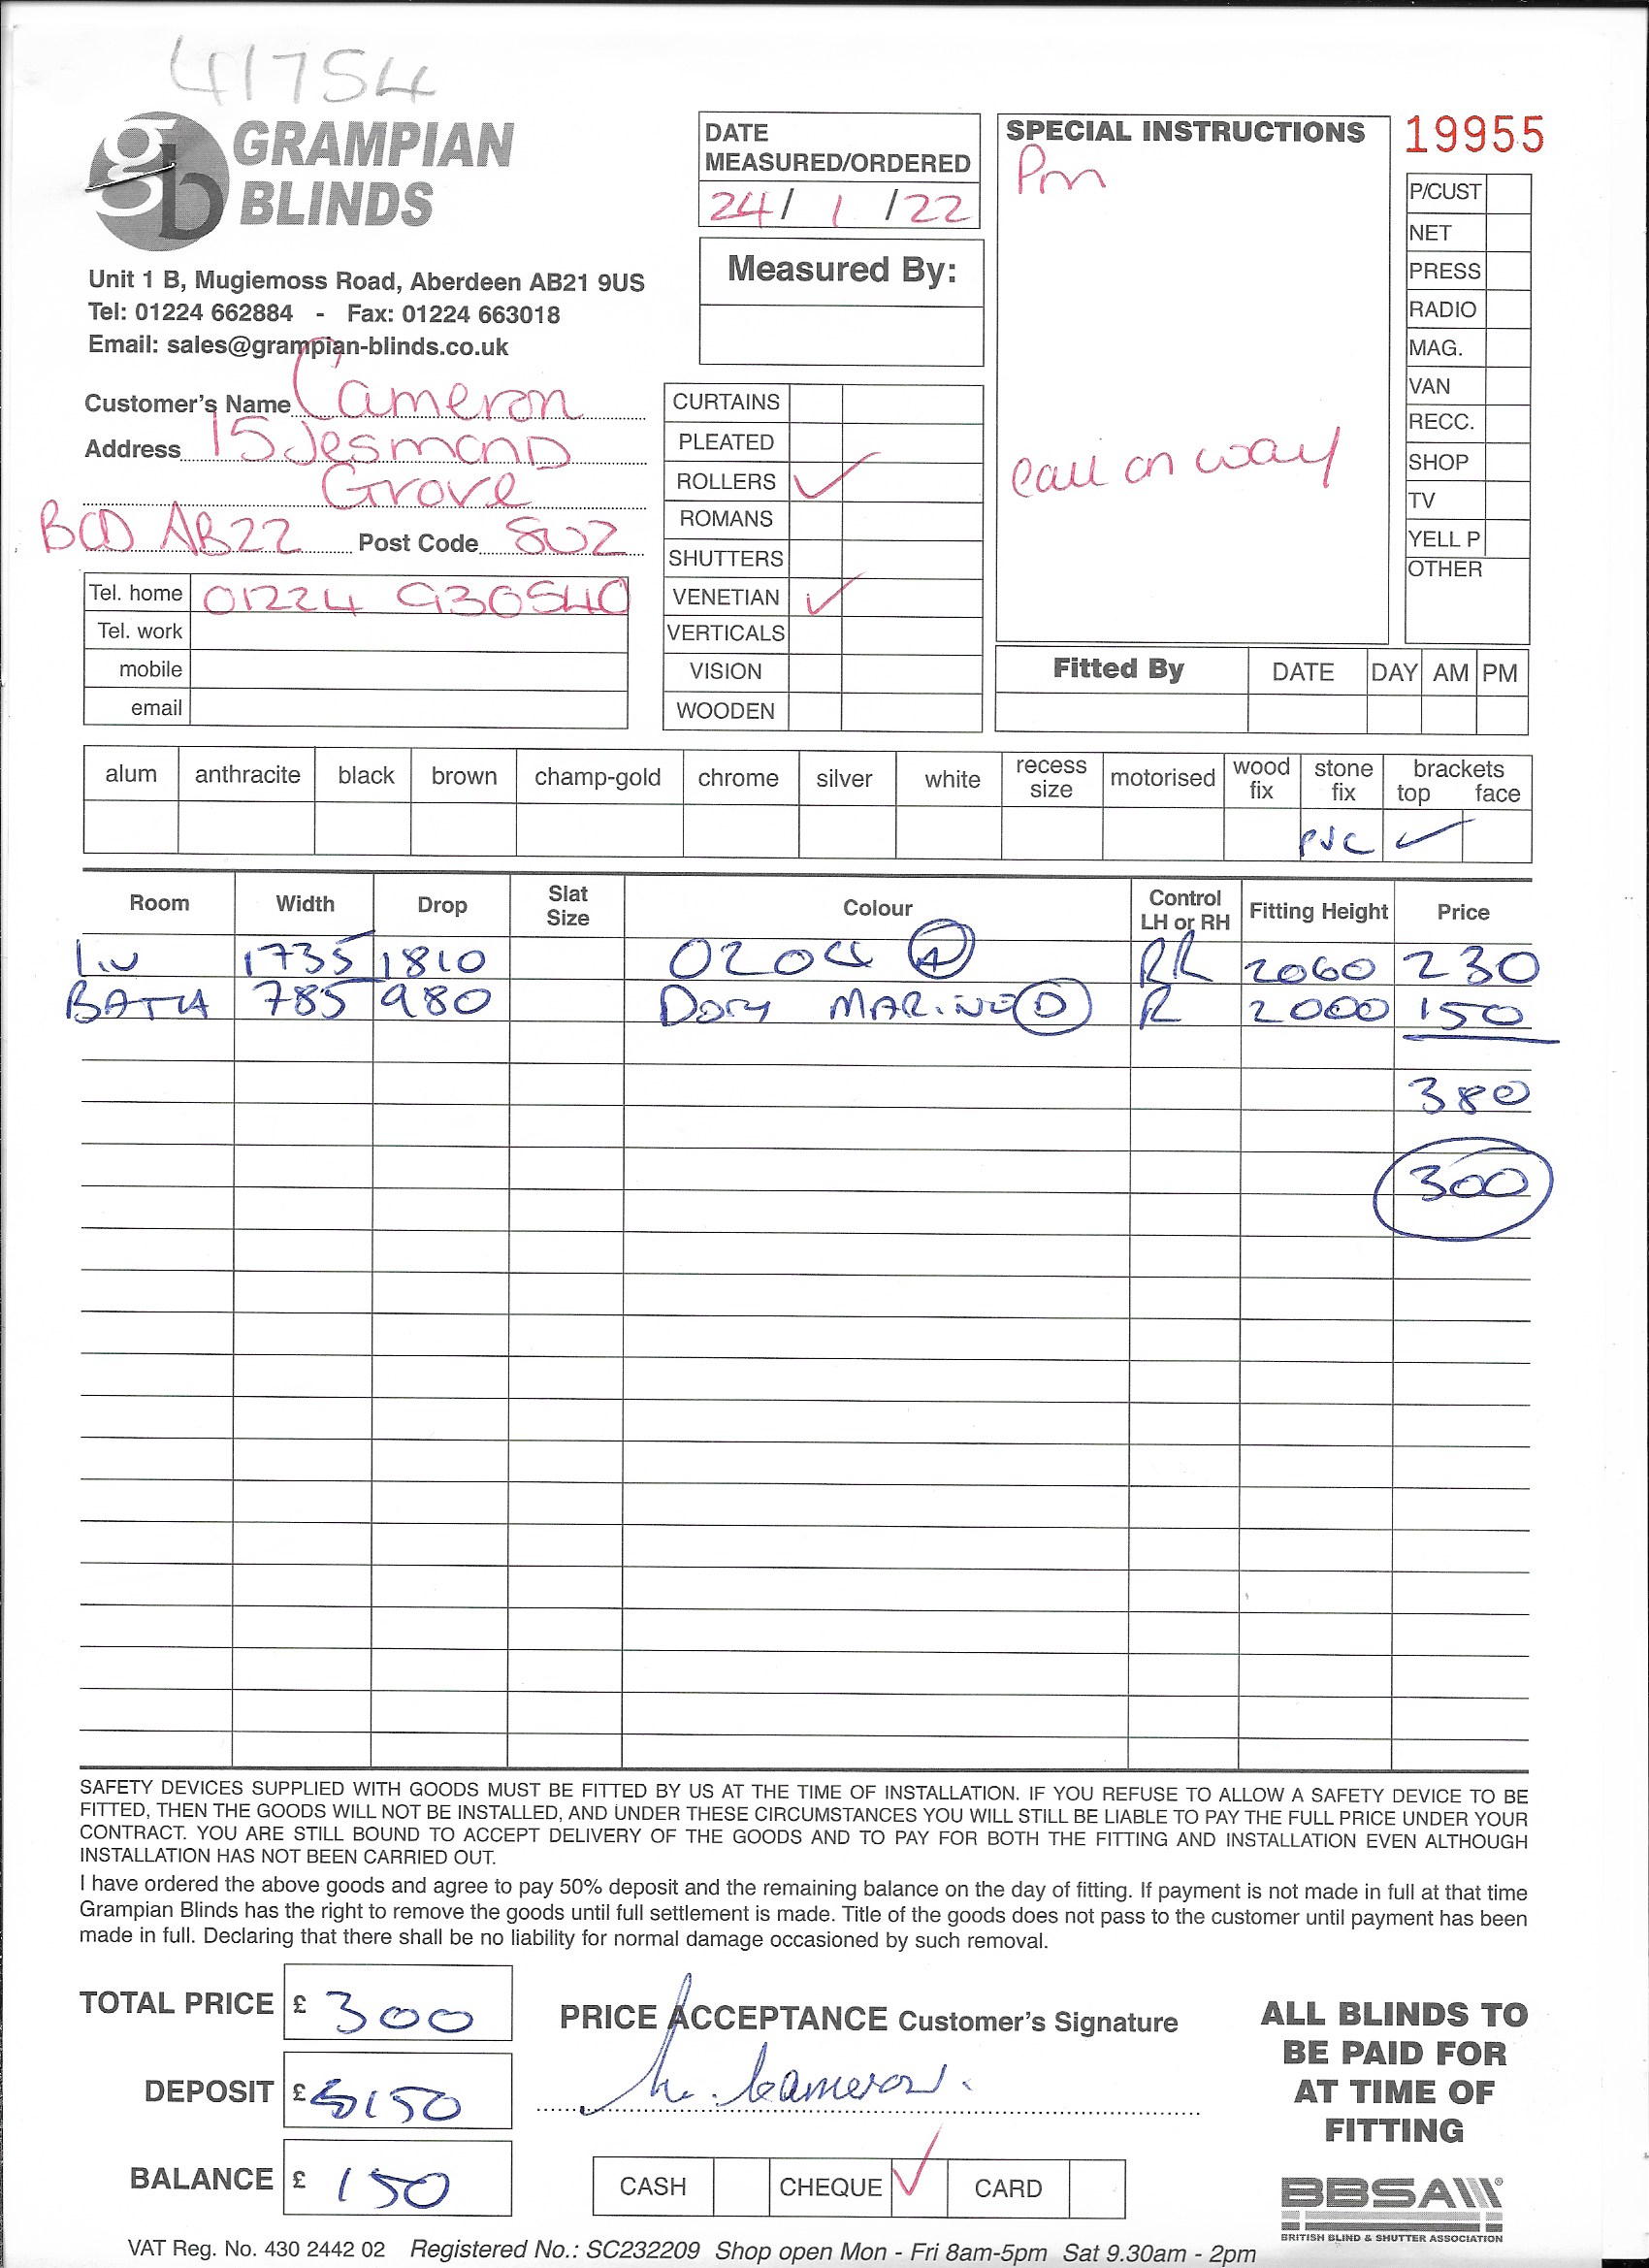 41754
gb GRAMPIAN
BLINDS
Unit 1 B, Mugiemoss Road, Aberdeen AB21 9US
Tel: 01224 662884 - Fax: 01224 663018
Email: sales@grampian-blinds.co.uk
Customer's Name Cameron
Address 15 Jesmond
Grove
BOD AB22 Post Code 8UZ
Tel. home 01224 930540
Tel. work
mobile
email
DATE
MEASURED/ORDERED
24/ 1 /22
Measured By:
CURTAINS
PLEATED
ROLLERS ✓
ROMANS
SHUTTERS
VENETIAN ✓
VERTICALS
VISION
WOODEN
SPECIAL INSTRUCTIONS
Pm
call on way
19955
P/CUST
NET
PRESS
RADIO
MAG.
VAN
RECC.
SHOP
TV
YELL P
OTHER
Fitted By DATE DAY AM PM
alum anthracite black brown champ-gold chrome silver white recess size motorised wood fix stone fix brackets top face
PVC ✓
Room Width Drop Slat Size Colour Control LH or RH Fitting Height Price
Liv 1735 1810 0204 A RR 2060 230
BATH 785 980 DORY MARINE D R 2000 150
380
300
SAFETY DEVICES SUPPLIED WITH GOODS MUST BE FITTED BY US AT THE TIME OF INSTALLATION. IF YOU REFUSE TO ALLOW A SAFETY DEVICE TO BE
FITTED, THEN THE GOODS WILL NOT BE INSTALLED, AND UNDER THESE CIRCUMSTANCES YOU WILL STILL BE LIABLE TO PAY THE FULL PRICE UNDER YOUR
CONTRACT. YOU ARE STILL BOUND TO ACCEPT DELIVERY OF THE GOODS AND TO PAY FOR BOTH THE FITTING AND INSTALLATION EVEN ALTHOUGH
INSTALLATION HAS NOT BEEN CARRIED OUT.
I have ordered the above goods and agree to pay 50% deposit and the remaining balance on the day of fitting. If payment is not made in full at that time
Grampian Blinds has the right to remove the goods until full settlement is made. Title of the goods does not pass to the customer until payment has been
made in full. Declaring that there shall be no liability for normal damage occasioned by such removal.
TOTAL PRICE £ 300
DEPOSIT £ 150
BALANCE £ 150
PRICE ACCEPTANCE Customer's Signature
Cameron.
CASH CHEQUE ✓ CARD
ALL BLINDS TO
BE PAID FOR
AT TIME OF
FITTING
BBSA
BRITISH BLIND & SHUTTER ASSOCIATION
VAT Reg. No. 430 2442 02 Registered No.: SC232209 Shop open Mon - Fri 8am-5pm Sat 9.30am - 2pm